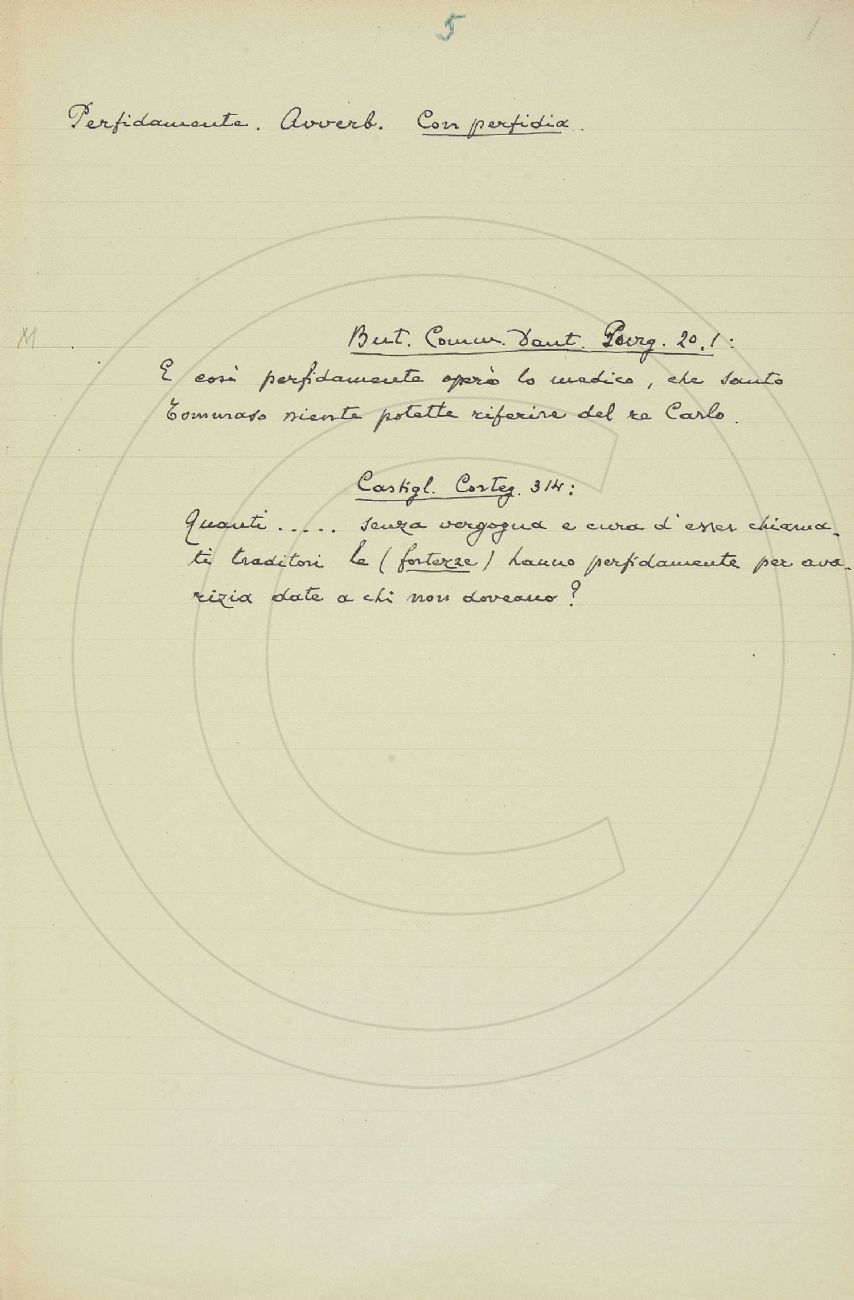 5
1
Perfidamente. Avverb. Con perfidia.
M
But. Comm. Dant. Purg. 20. 1:
E così perfidamente operò lo medico, che santo
Tommaso niente potette riferire del re Carlo.
Castigl. Corteg. 314:
Quanti ..... senza vergogna e cura d'esser chiama-
ti traditori le (fortezze) hanno perfidamente per ava-
rizia date a chi non doveano?